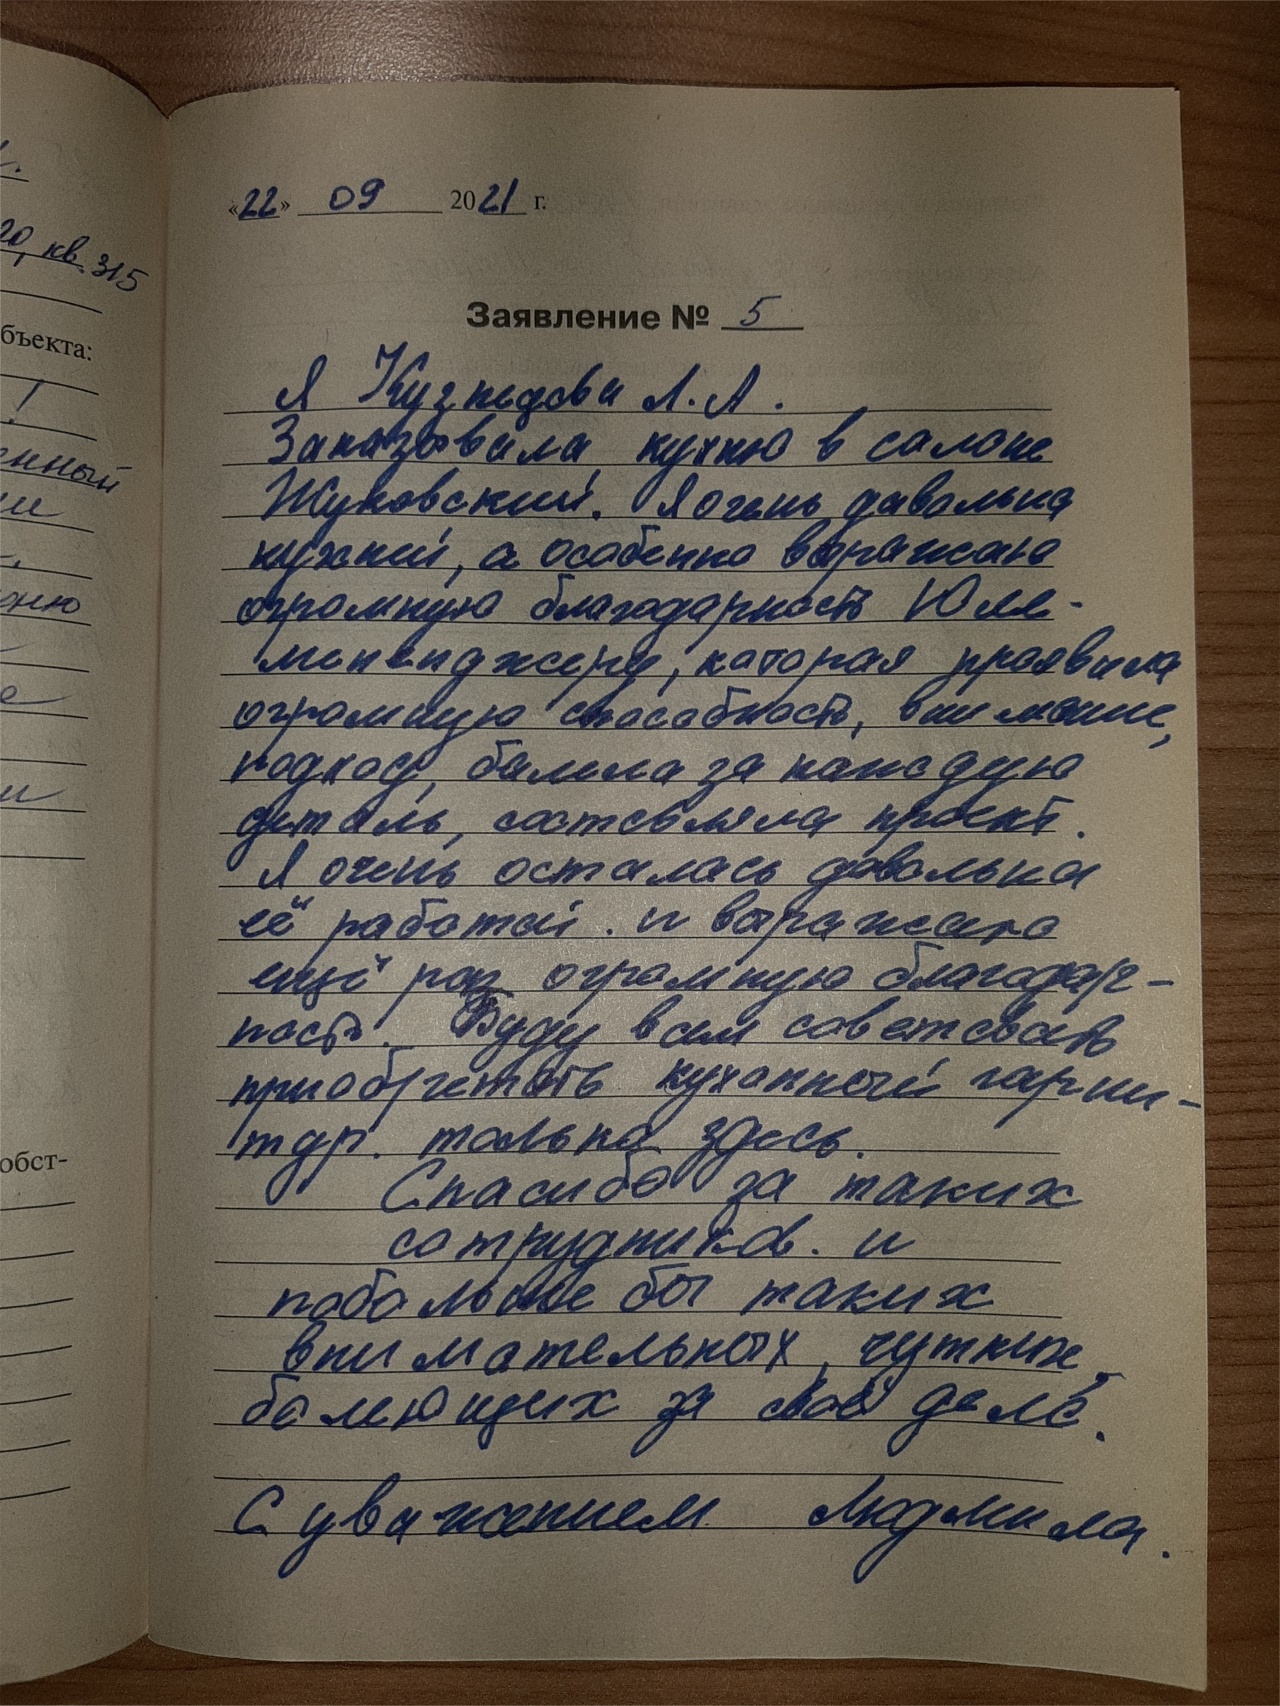 20, кв. 315
бъекта:
!
!
енный
ии
дню
е
и
обст-
«22» 09 2021 г.
Заявление № 5
Я Кузнецова Л.А.
Заказывала кухню в салоне
Жуковский. Я очень давольна
кухней, а особенно выражаю
огромную благодарность Юле-
мененджеру, каторая проявила
огромную способность, внимание,
подход, балела за каждую
деталь, составляла проект.
Я очень осталась давольна
её работай. и выражаю
ещё раз огромную благодар-
ность. Буду всем советовать
приобретать куханный гарни-
тур. только здесь.
Спасибо за таких
сотрудников. и
побольше бы таких
внимательных, чутких,
болеющих за своё дело.
С уважением Людмила.